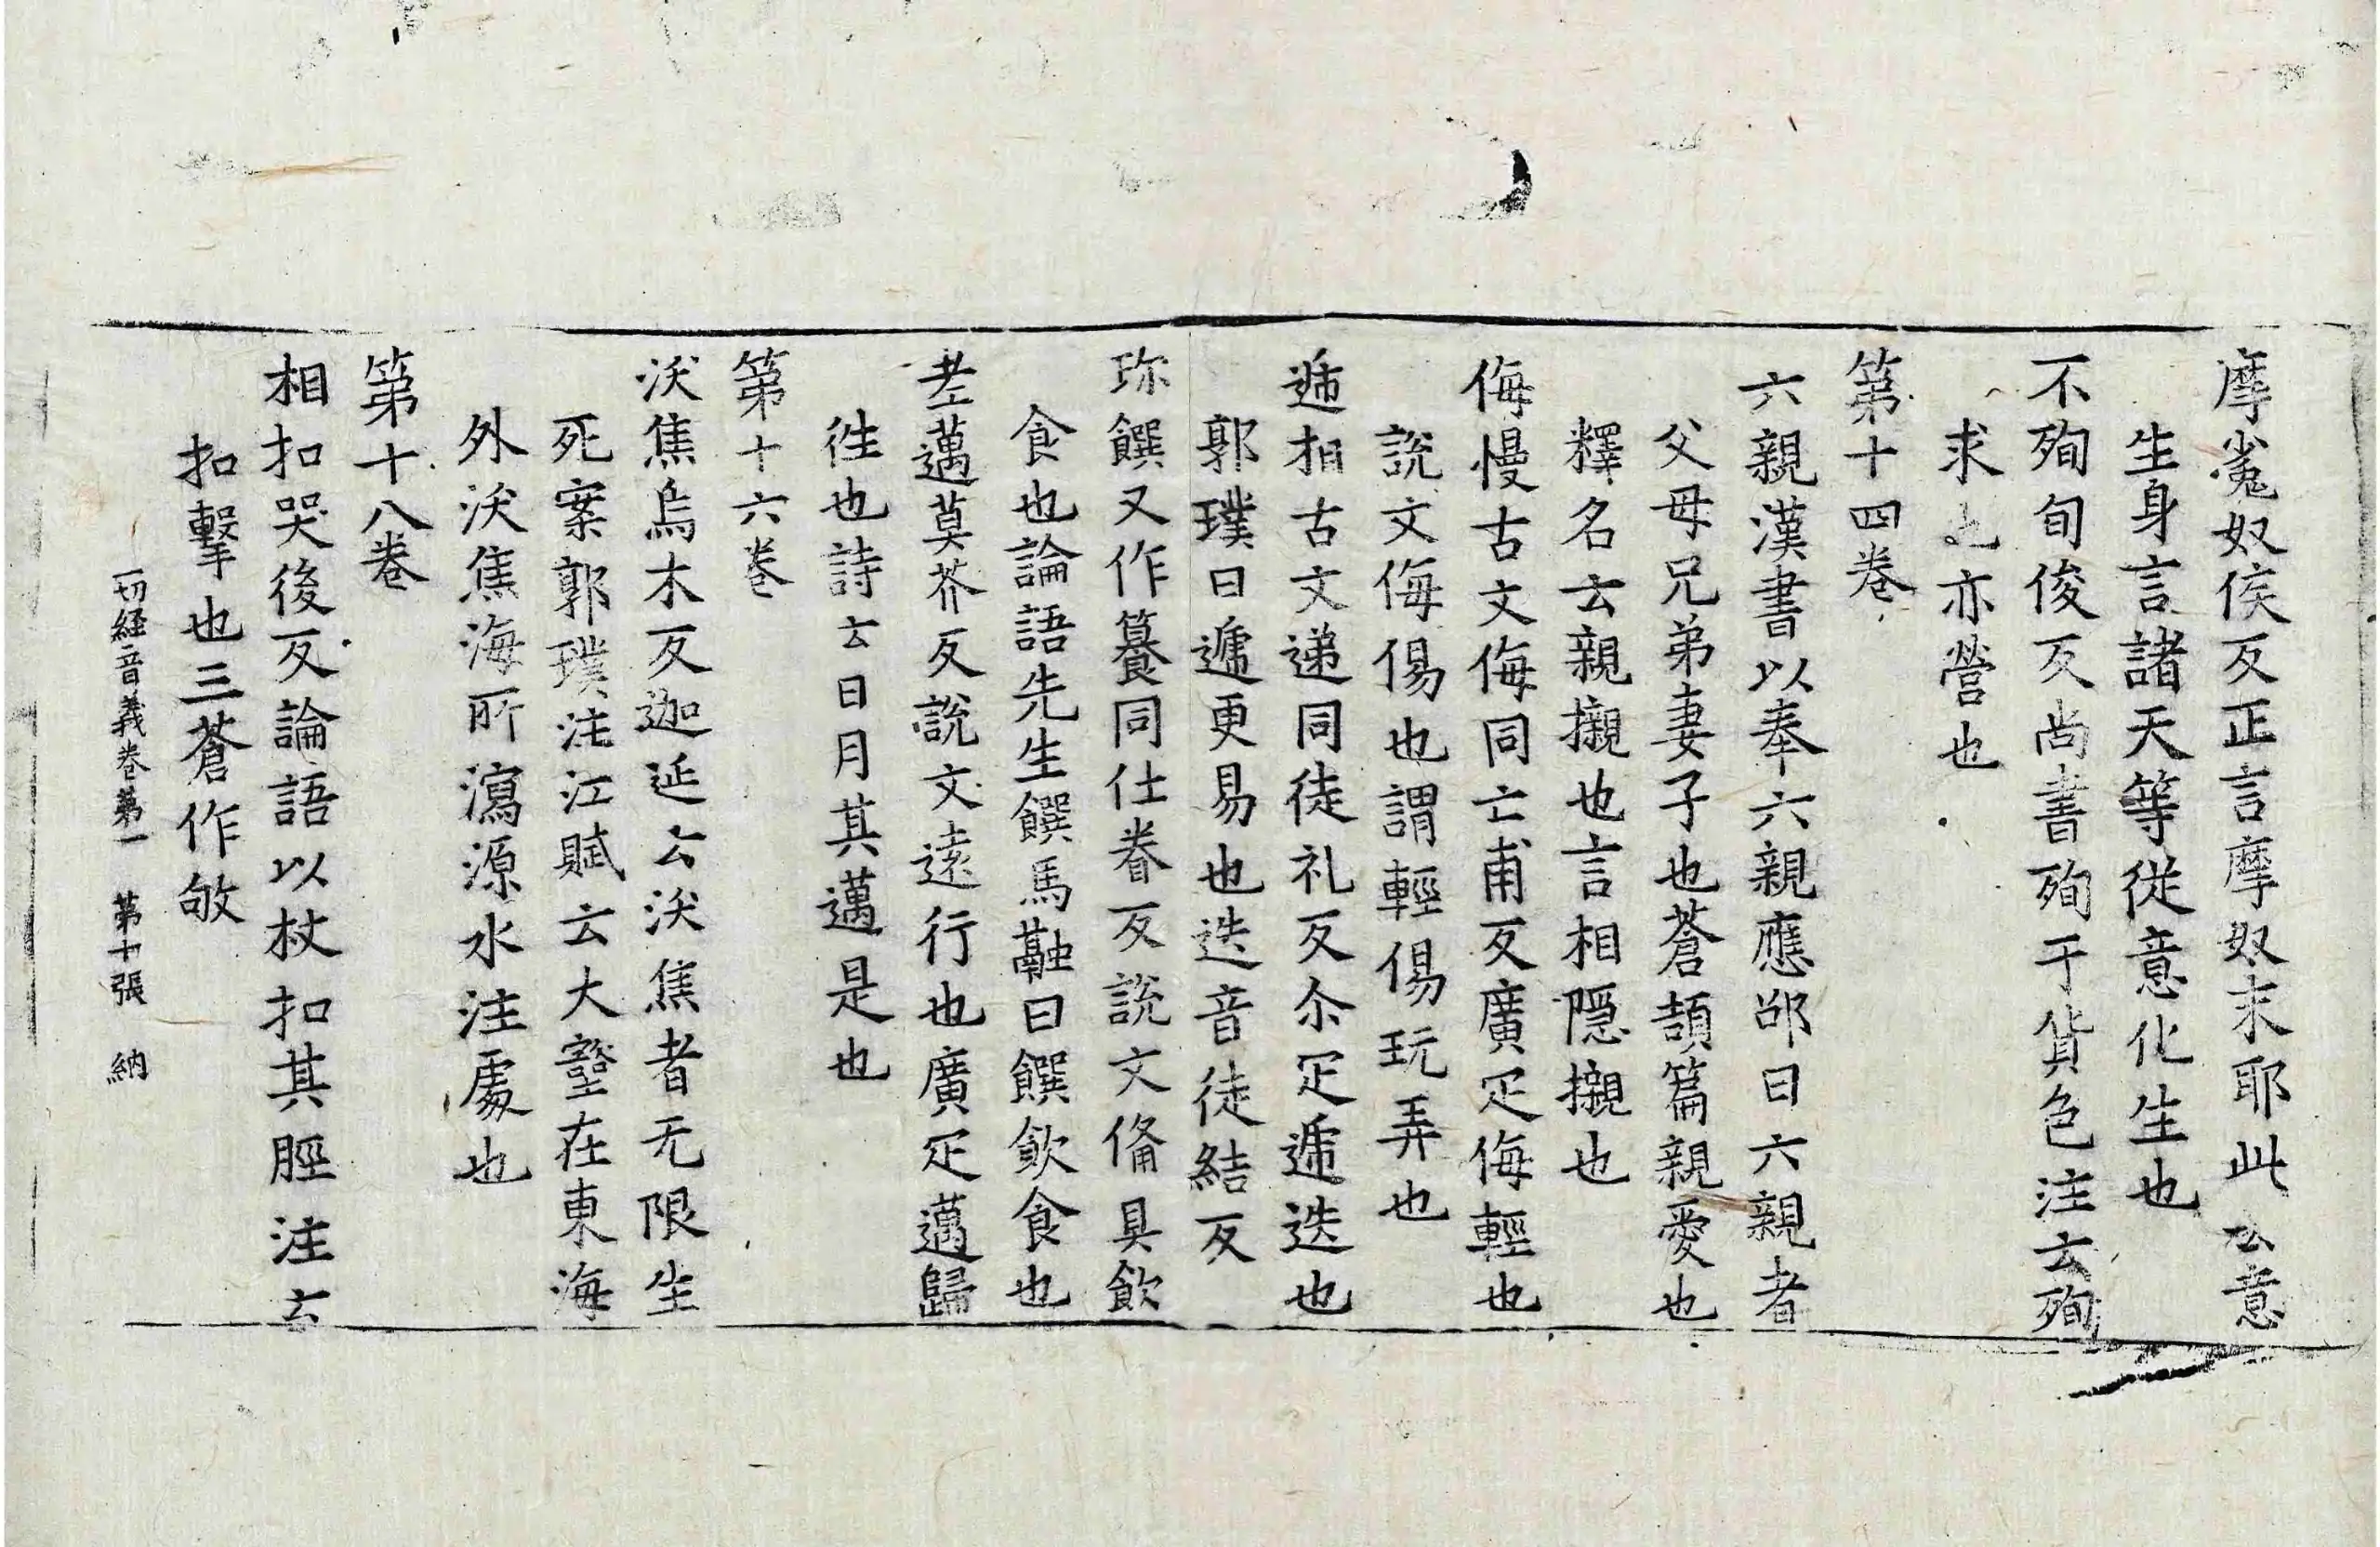 摩㝹奴侯反正言摩奴末耶此云意
生身言諸天等從意化生也
不殉旬俊反尚書殉于貨色注云殉
求之亦營也
第十四卷
六親漢書以奉六親應邵曰六親者
父母兄弟妻子也蒼頡篇親愛也
釋名云親櫬也言相隱櫬也
侮慢古文侮同亡甫反廣疋侮輕也
說文侮傷也謂輕傷玩弄也
遞相古文递同徒礼反尒疋遞迭也
郭璞曰遞更易也迭音徒結反
珎饌又作籑同仕眷反說文俻具飲
食也論語先生饌馬融曰饌飲食也
老邁莫芥反說文遠行也廣疋邁歸
徃也詩云日月其邁是也
第十六卷
沃焦烏木反迦延云沃焦者无限生
死案郭璞注江賦云大壑在東海
外沃焦海所瀉源水注處也
第十八卷
相扣哭後反論語以杖扣其脛注云
扣擊也三蒼作敂
一切経音義卷第一 第十張 納